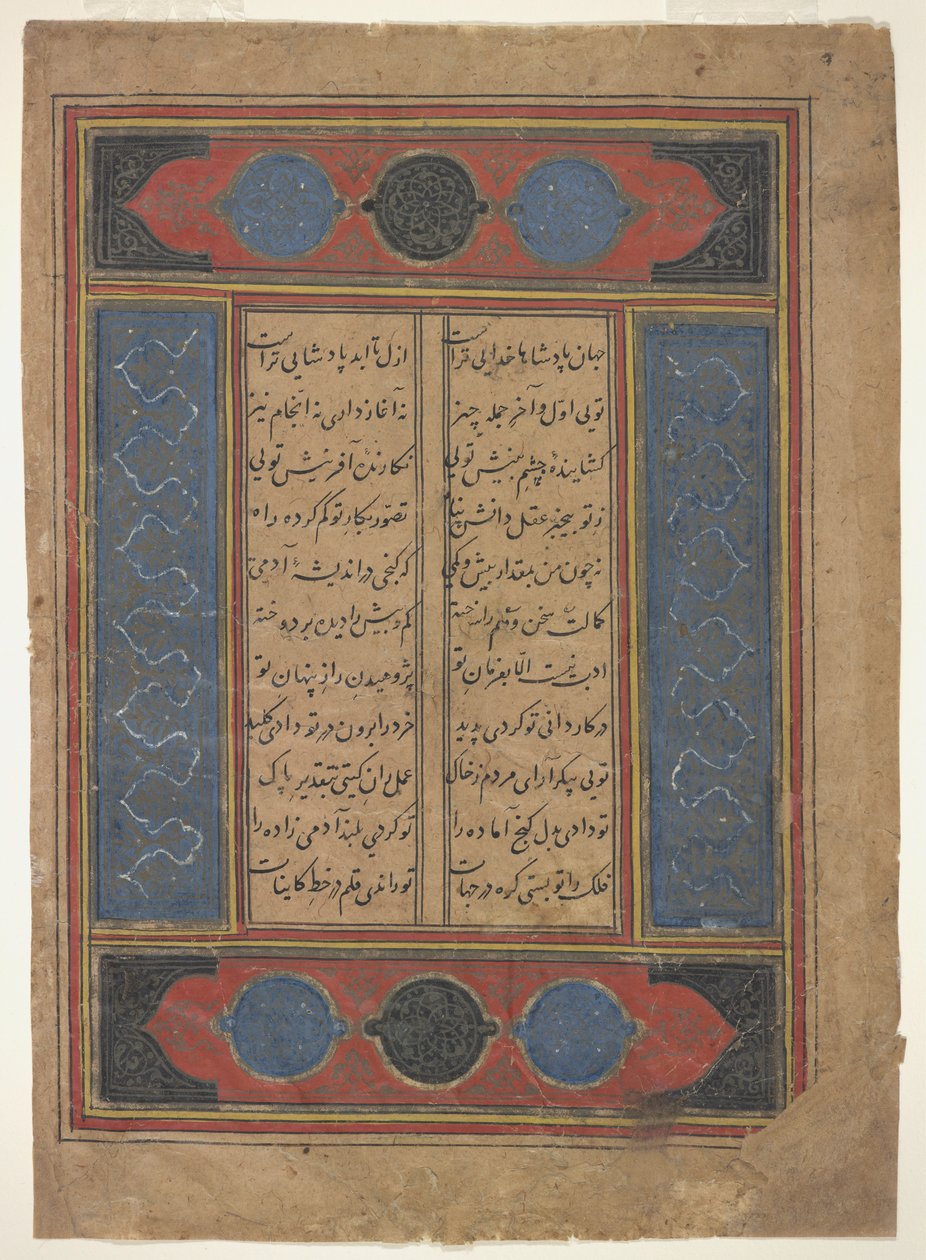 جهان پادشاها خدایی تراست ازل تا ابد پادشایی تراست
تویی اوّل و آخرِ جمله چیز نه آغاز داری نه انجام نیز
کشایندهٔ چشمِ بینش تویی نکارندهٔ آفرینش تویی
ز تو بیخبر عقل دانش پناه تصوّر بکارِ تو کم کرده راه
نه چون من بمقدار بیش و کمی که کنجی در اندیشهٔ آدمی
کمالت سخن را کم و بیش را دیده بر دوخته
ادب نیست الّا بفرمانِ تو پژوهیدنِ رازِ پنهانِ تو
در کاردانی تو کردی پدید خرد را برون در تو دادی کلید
تویی پیکر آرای مردم ز خاک عمل رانِ کیتی بتقدیرِ پاک
تو دادی بدل کنج آماده را تو کردی بلند آدمی زاده را
فلک را تو بستی کره در جهات تو راندی قلم در خطِ کاینات